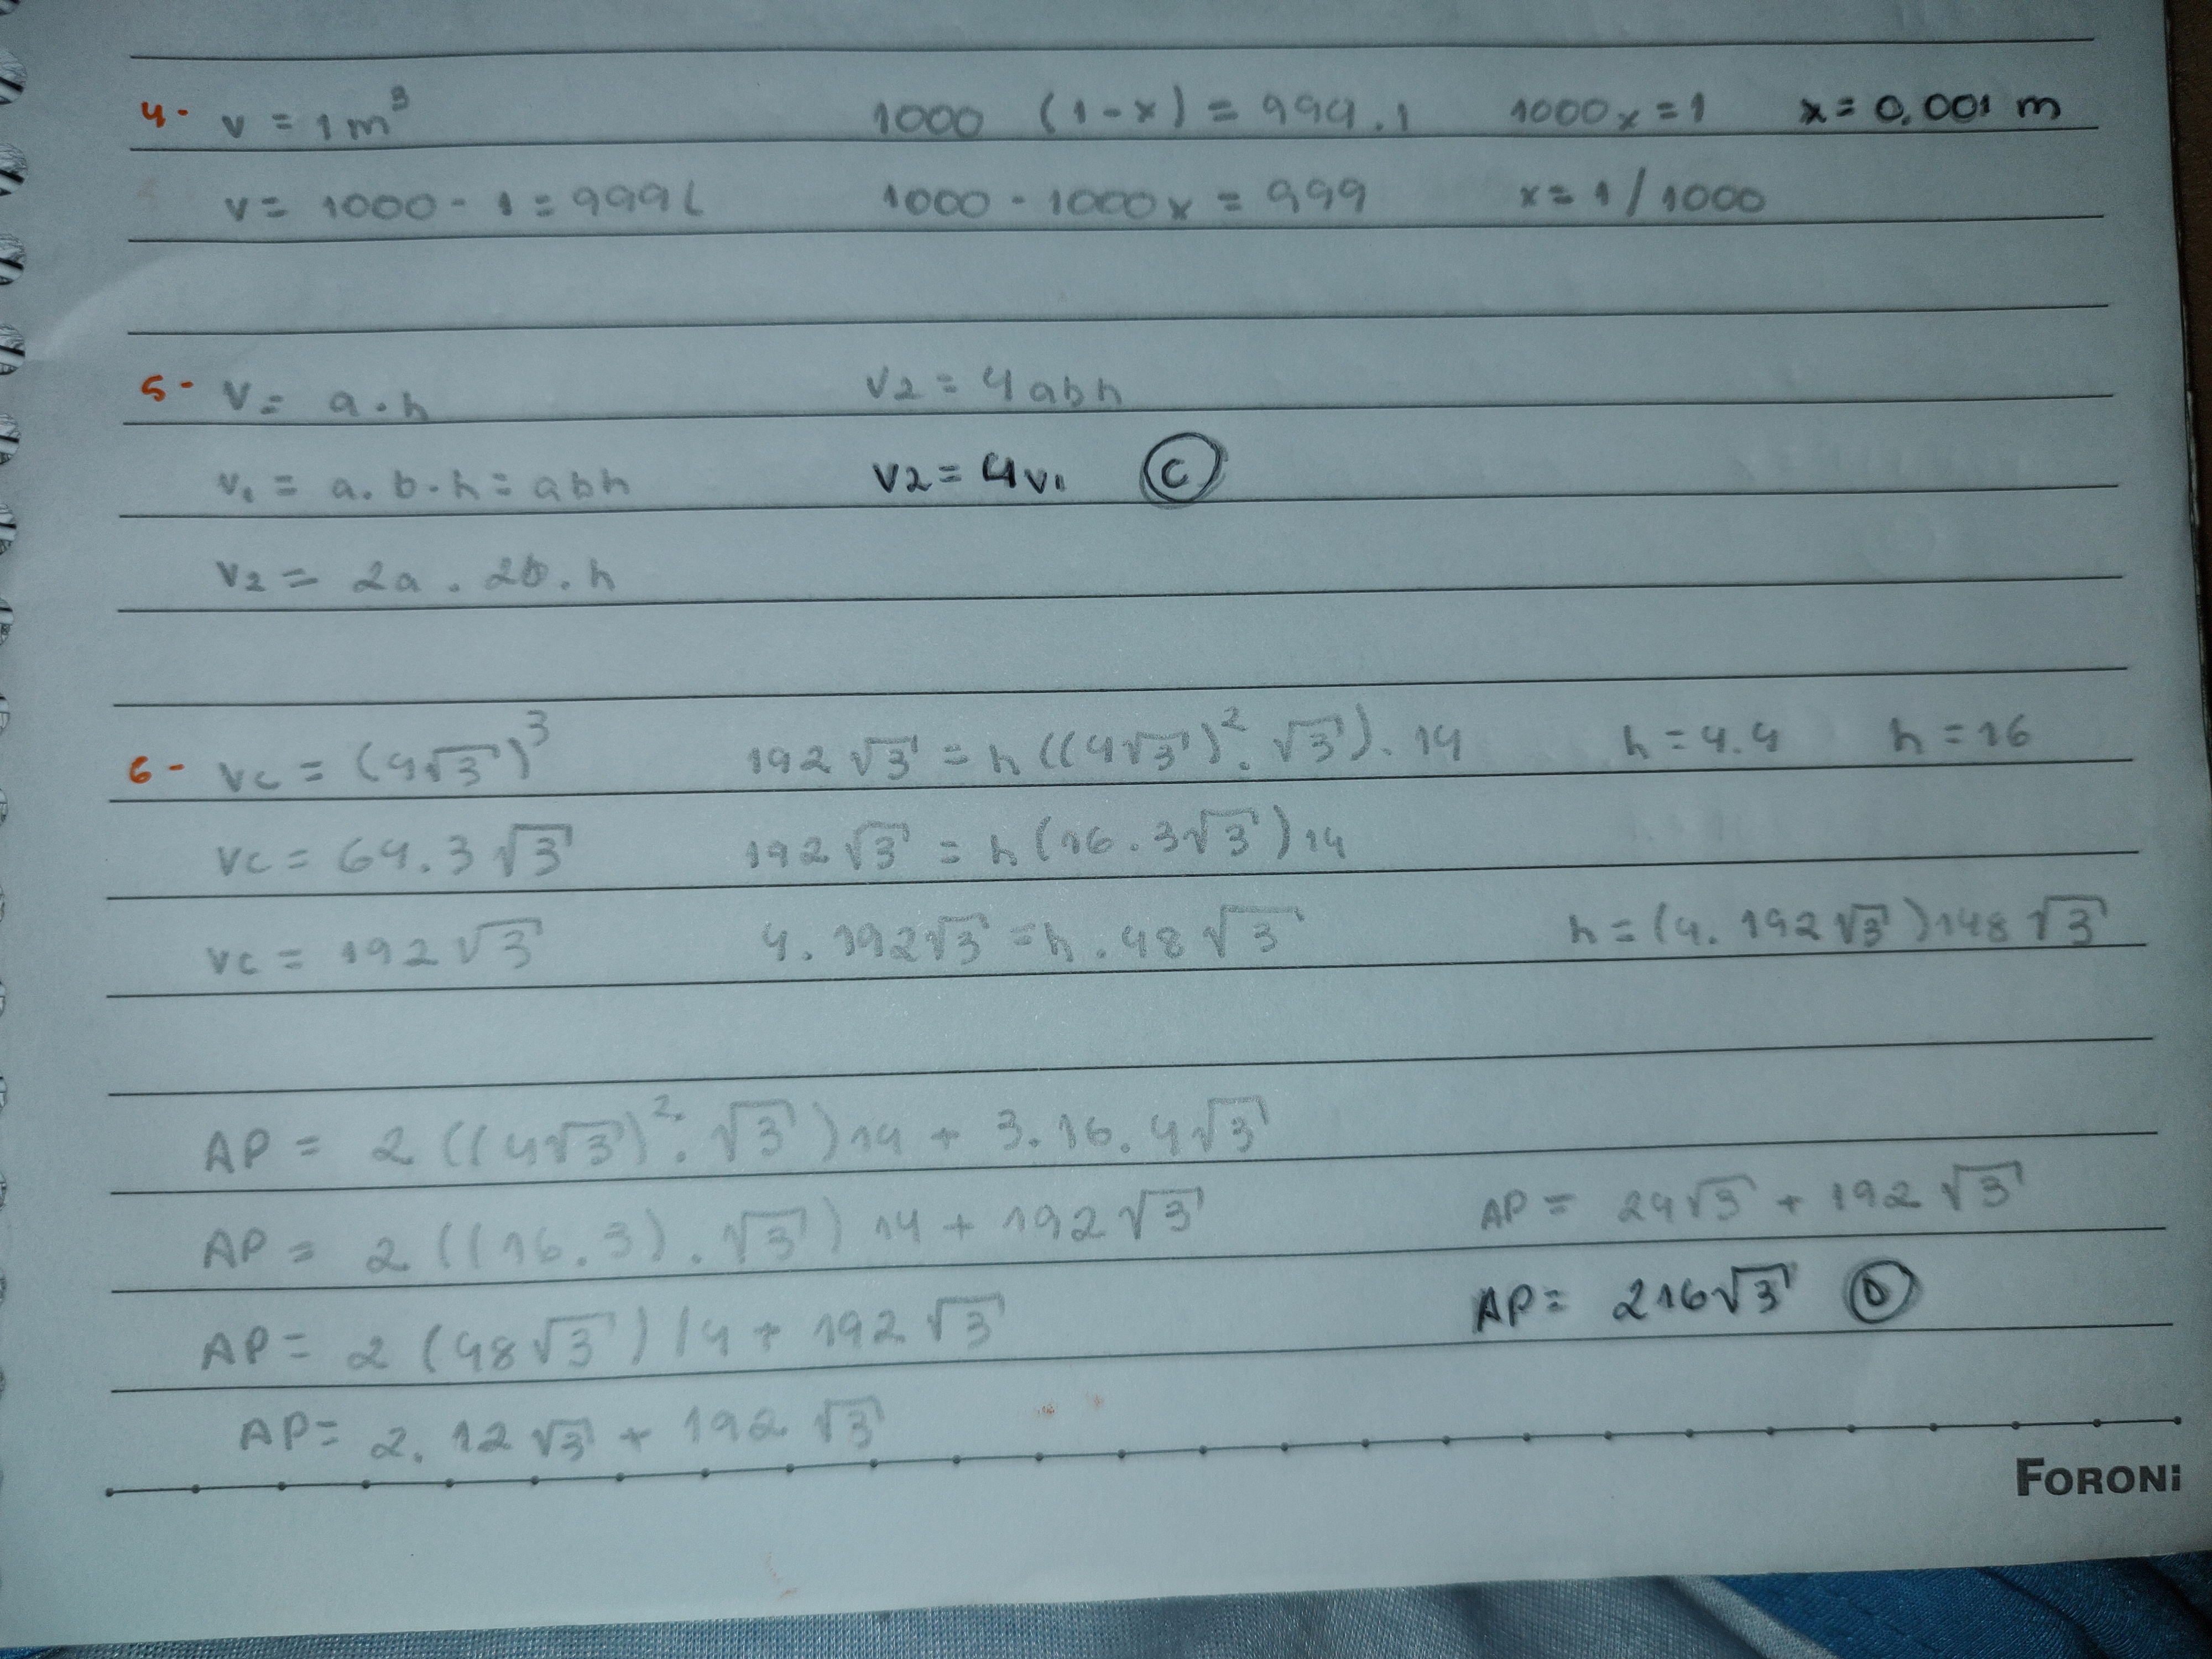 4- v = 1m³ 1000 (1-x) = 999.1 1000x = 1 x = 0.001 m
v = 1000 - 1 = 999L 1000 - 1000x = 999 x = 1/1000
5- V = a.h V2 = 4abh
V1 = a.b.h = abh V2 = 4V1 C
V2 = 2a . 2b . h
6- Vc = (4√3)³ 192√3 = h((4√3)².√3).14 h = 4.4 h = 16
Vc = 64.3√3 192√3 = h(16.3√3)14
Vc = 192√3 4.192√3 = h.48√3 h = (4.192√3)148√3
AP = 2((4√3)².√3)14 + 3.16.4√3
AP = 2((16.3).√3)14 + 192√3 AP = 24√3 + 192√3
AP = 2(48√3)/4 + 192√3 AP = 216√3 D
AP = 2.12√3 + 192√3
FORONI